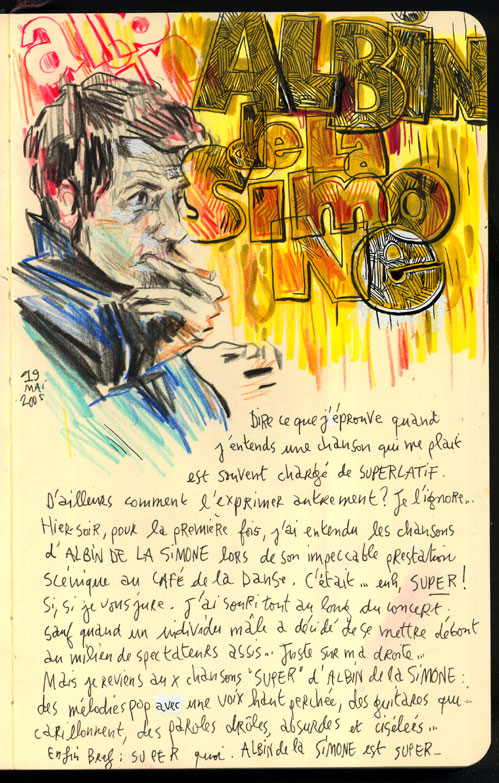 ALBIN
de La
SIMO
N
e
19
MAI
2005
Dire ce que j'éprouve quand
j'entends une chanson qui me plait
est souvent chargé de SUPERLATIF.
D'ailleurs comment l'exprimer autrement? Je l'ignore...
Hier soir, pour la première fois, j'ai entendu les chansons
d'ALBIN DE LA SIMONE lors de son impeccable prestation
scénique au CAFÉ de la Danse. C'était... euh, SUPER!
Si, si je vous jure. J'ai souri tout au long du concert.
Sauf quand un individu mâle a décidé de se mettre debout
au milieu de spectateurs assis... Juste sur ma droite...
Mais je reviens aux chansons "SUPER" d'ALBIN de la SIMONE:
des mélodies pop avec une voix haut perchée, des guitares qui
carillonnent, des paroles drôles, absurdes et ciselées...
Enfin Bref: SUPER quoi. ALBIN de la SIMONE est SUPER_